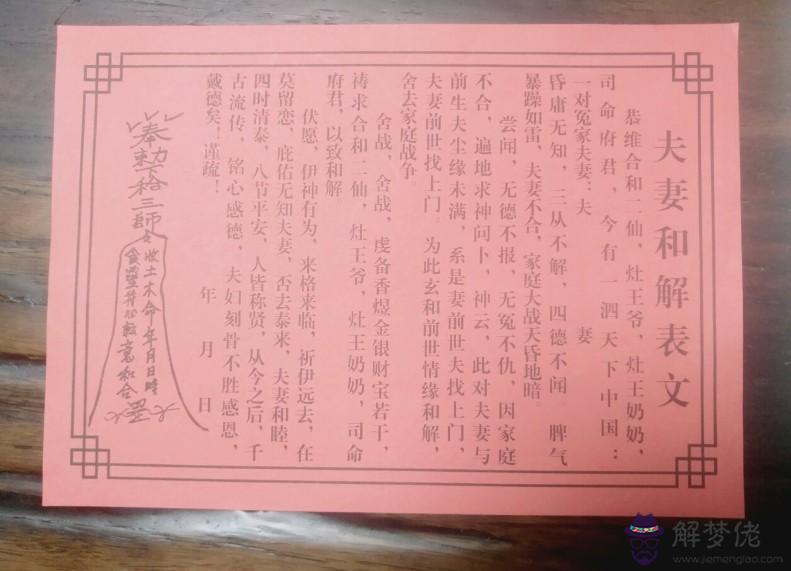 夫妻和解表文
恭维合和二仙，灶王爷，灶王奶奶，
司命府君，今有一泗天下中国：
一对冤家夫妻：夫 妻
昏庸无知，三从不解，四德不闻。脾气
暴躁如雷，夫妻不合，家庭大战天昏地暗。
尝闻，无德不报，无冤不仇，因家庭
不合，遍地求神问卜，神云，此对夫妻与
前生夫尘缘未满，系是妻前世夫找上门，
夫妻前世找上门。为此玄和前世情缘和解，
舍去家庭战争。
舍战、舍战，虔备香煜金银财宝若干，
祷求合和二仙，灶王爷，灶王奶奶，司命
府君，以致和解。
伏愿，伊神有为，来格来临，祈伊远去，在
莫留恋，庇佑无知夫妻，否去泰来，夫妻和睦，
四时清泰，八节平安，人皆称贤，从今之后，千
古流传，铭心感德，夫妇刻骨不胜感恩，
戴德矣！谨疏！
年 月 日
奉勅 三師
收土木命 年月日時
和合
解梦佬
www.jiemenglao.com